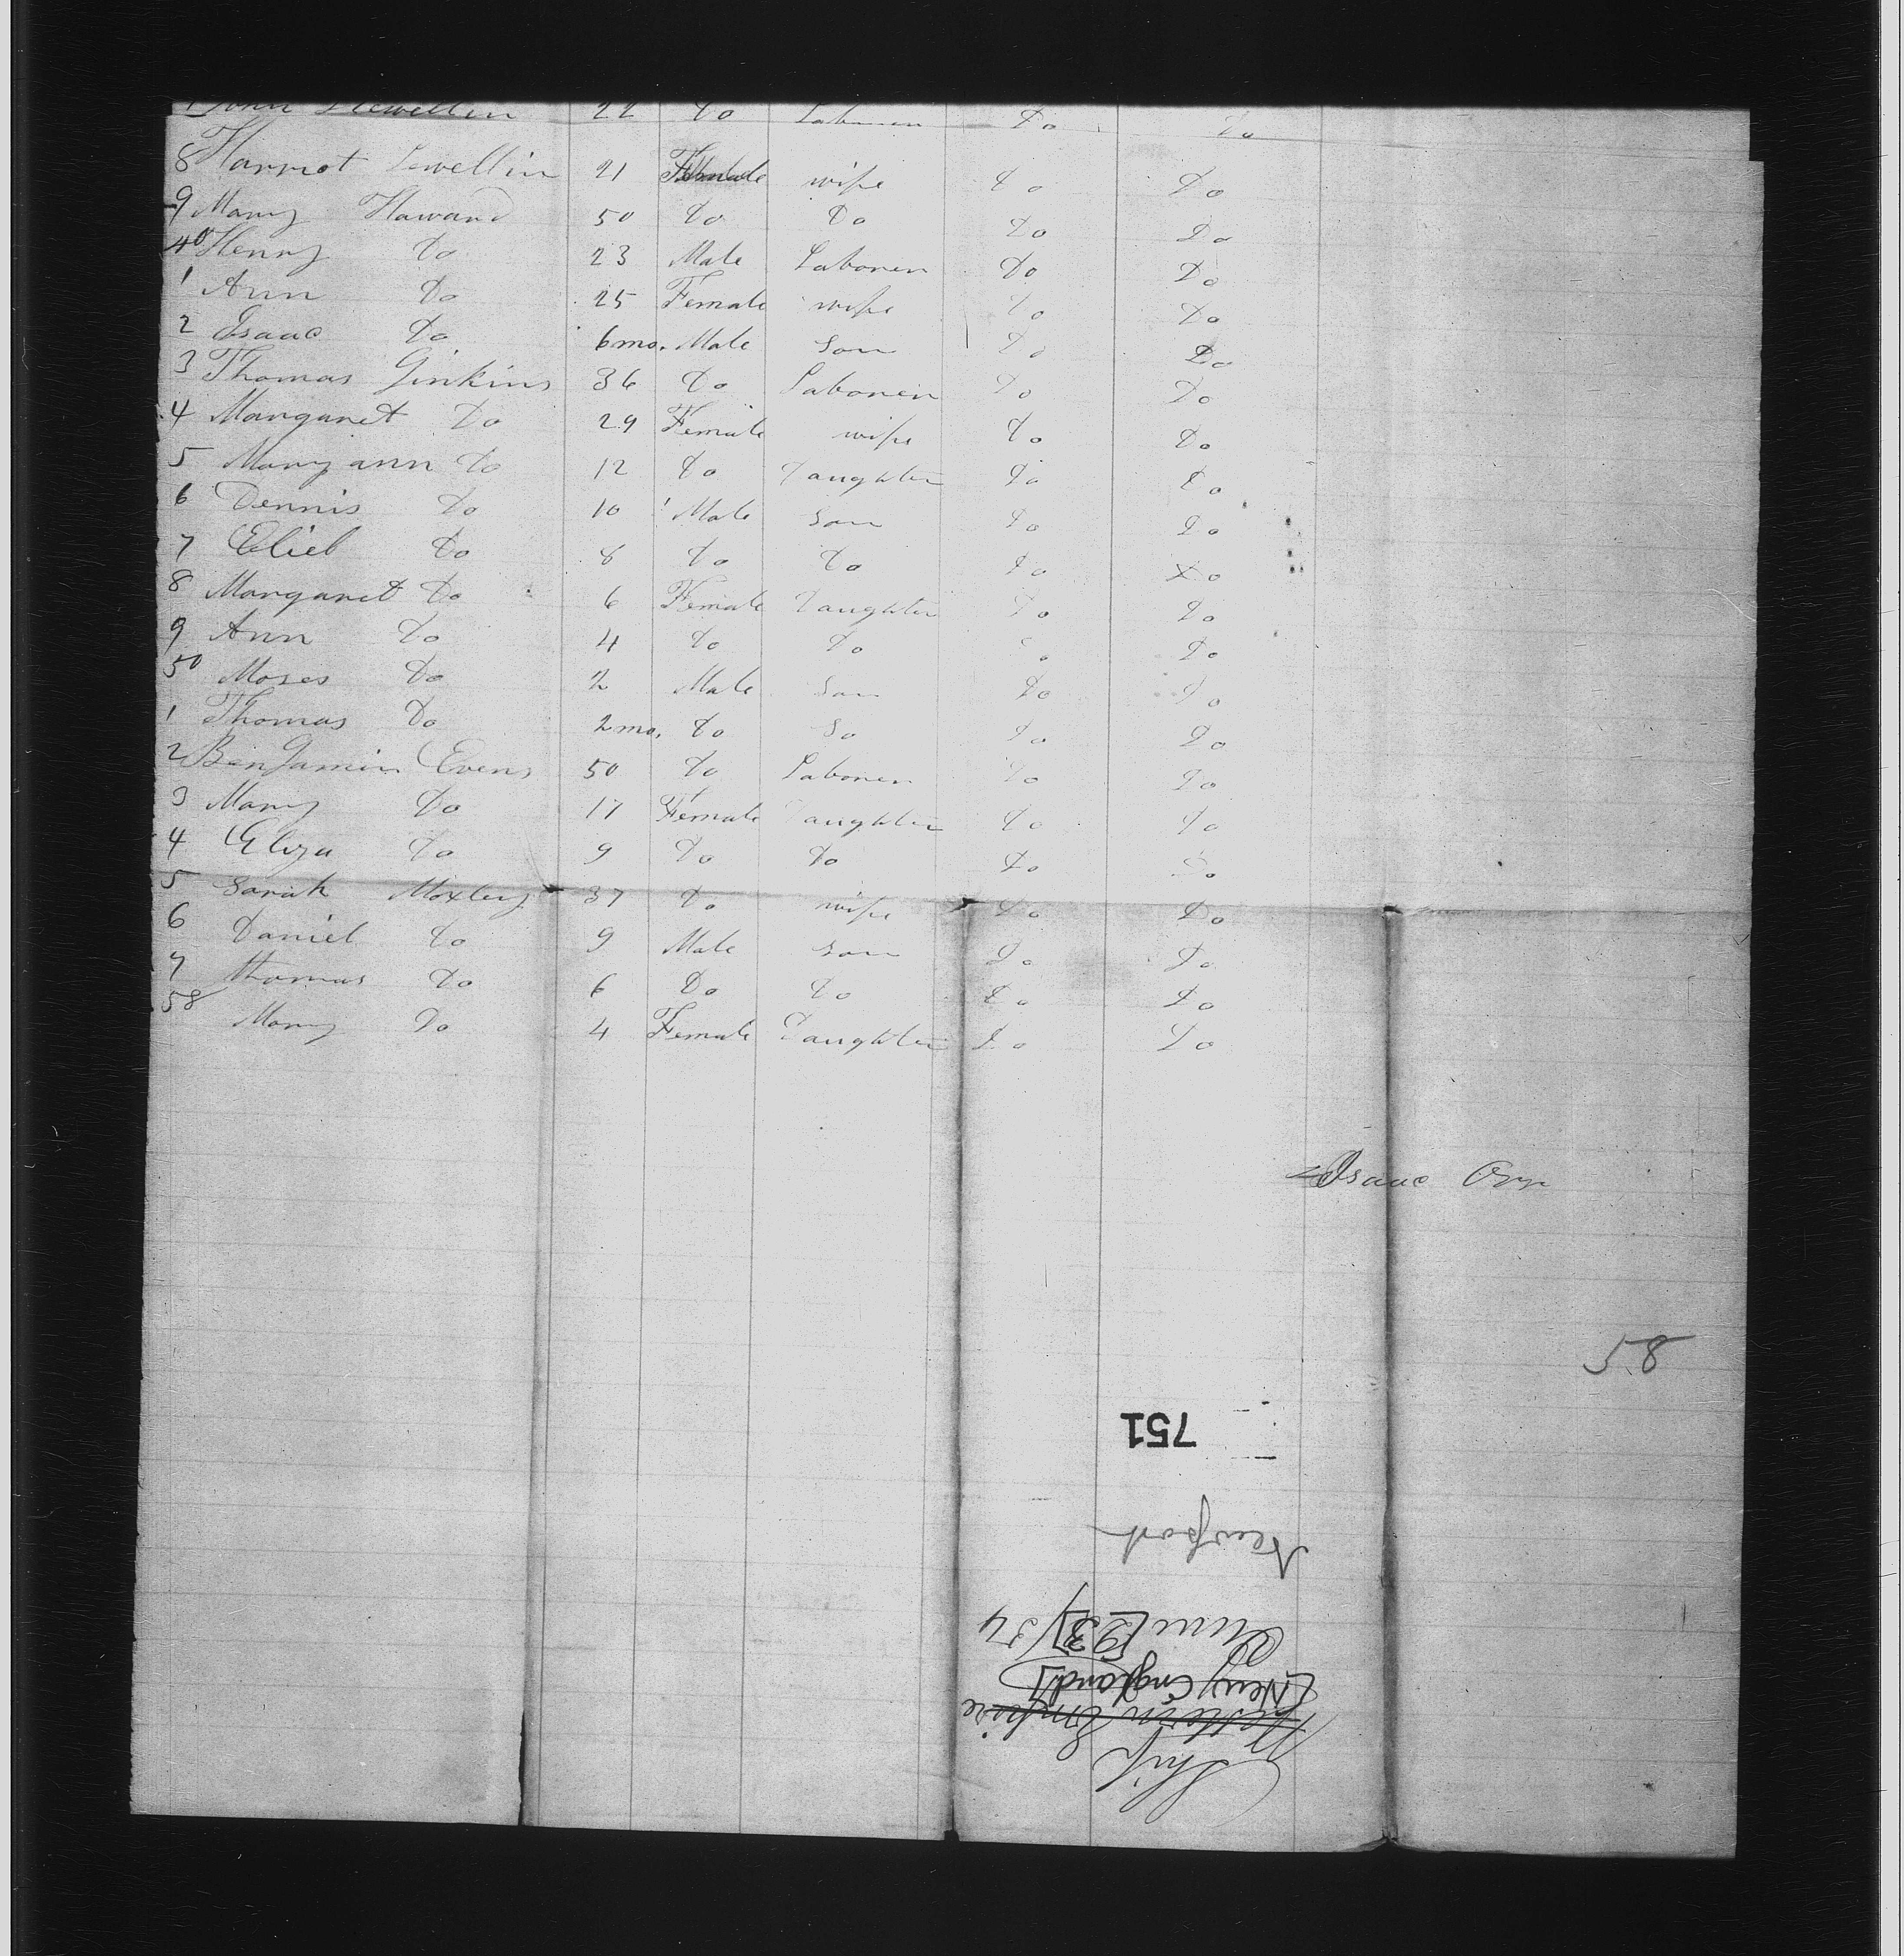 John Llewellin 22 Do Laborer Do Do
8 Harriot Lewellin 21 Female wife Do Do
9 Mary Haward 50 Do Do Do Do
40 Henry Do 23 Male Laborer Do Do
1 Ann Do 25 Female wife Do Do
2 Isaac Do 6 mo. Male Son Do Do
3 Thomas Jinkins 36 Do Laborer Do Do
4 Margaret Do 29 Female wife Do Do
5 Mary ann Do 12 Do Daughter Do Do
6 Dennis Do 10 Male Son Do Do
7 Elieb Do 8 Do Do Do Do
8 Margaret Do 6 Female Daughter Do Do
9 Ann Do 4 Do Do Do Do
50 Moses Do 2 Male Son Do Do
1 Thomas Do 2 mo. Do Do Do Do
2 Benjamin Evens 50 Do Laborer Do Do
3 Mary Do 17 Female Daughter Do Do
4 Eliza Do 9 Do Do Do Do
5 Sarah Moxley 37 Do wife Do Do
6 Daniel Do 9 Male Son Do Do
7 thomas Do 6 Do Do Do Do
58 Mary Do 4 Female Daughter Do Do
Isaac Orr
58
751
Newport
June [23]/54
[New England]
Western Empire
Ship